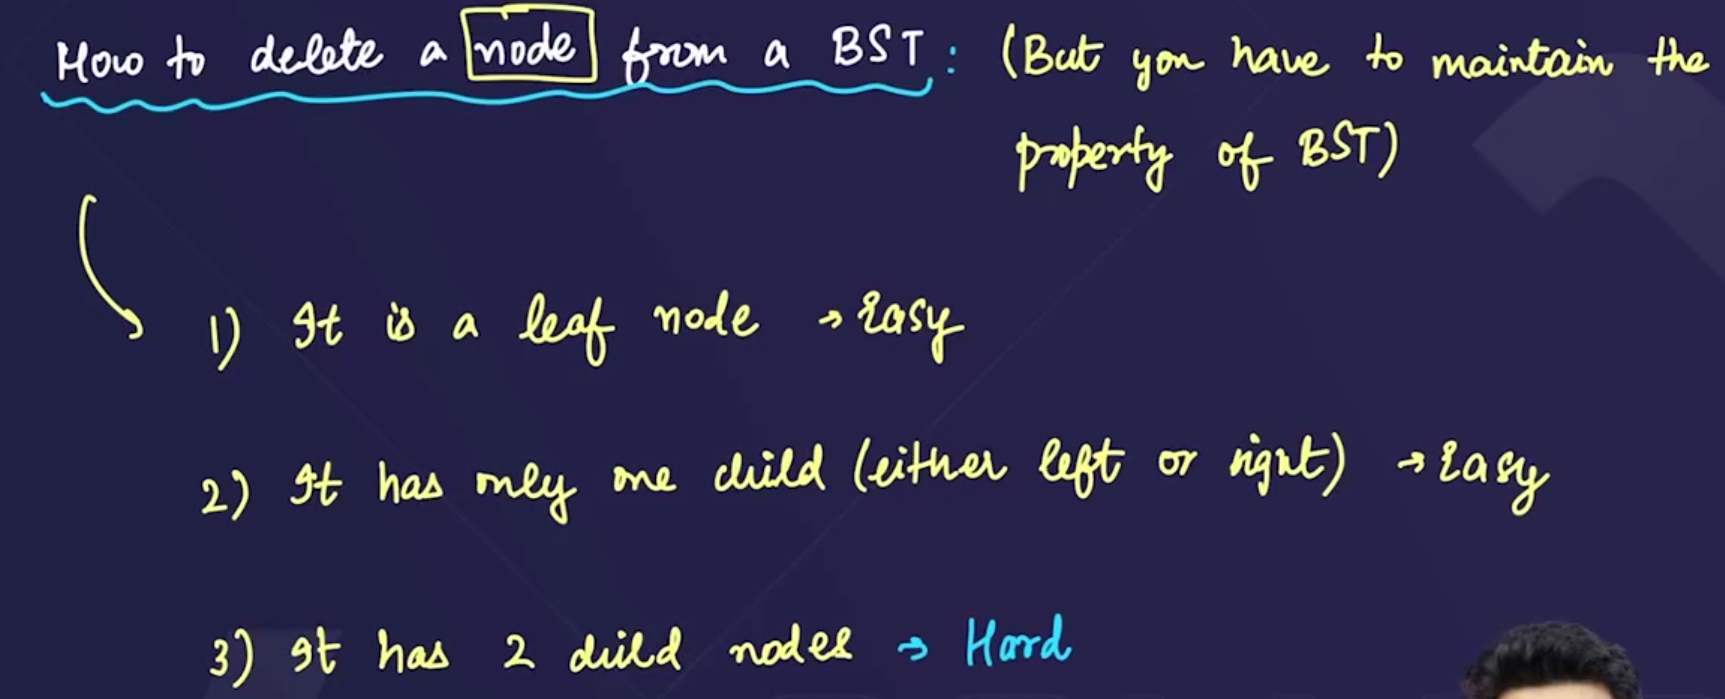 How to delete a node from a BST : (But you have to maintain the
property of BST)
1) It is a leaf node → Easy
2) It has only one child (either left or right) → Easy
3) It has 2 child nodes → Hard